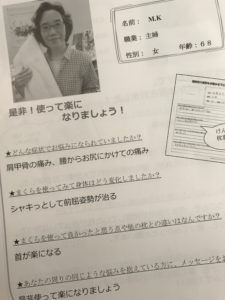 名前： M.K
職業：主婦
性別： 女 年齢：６８
是非！使って楽に
なりましょう！
★どんな症状でお悩みになられていましたか？
肩甲骨の痛み、腰からお尻にかけての痛み
★まくらを使ってみて身体はどう変化しましたか？
シャキっとして前屈姿勢が治る
★まくらを使って良かったと思う点や他の枕との違いはなんですか？
首が楽になる
★あなたの周りの同じような悩みを抱えている方に、メッセージを
是非使って楽になりましょう